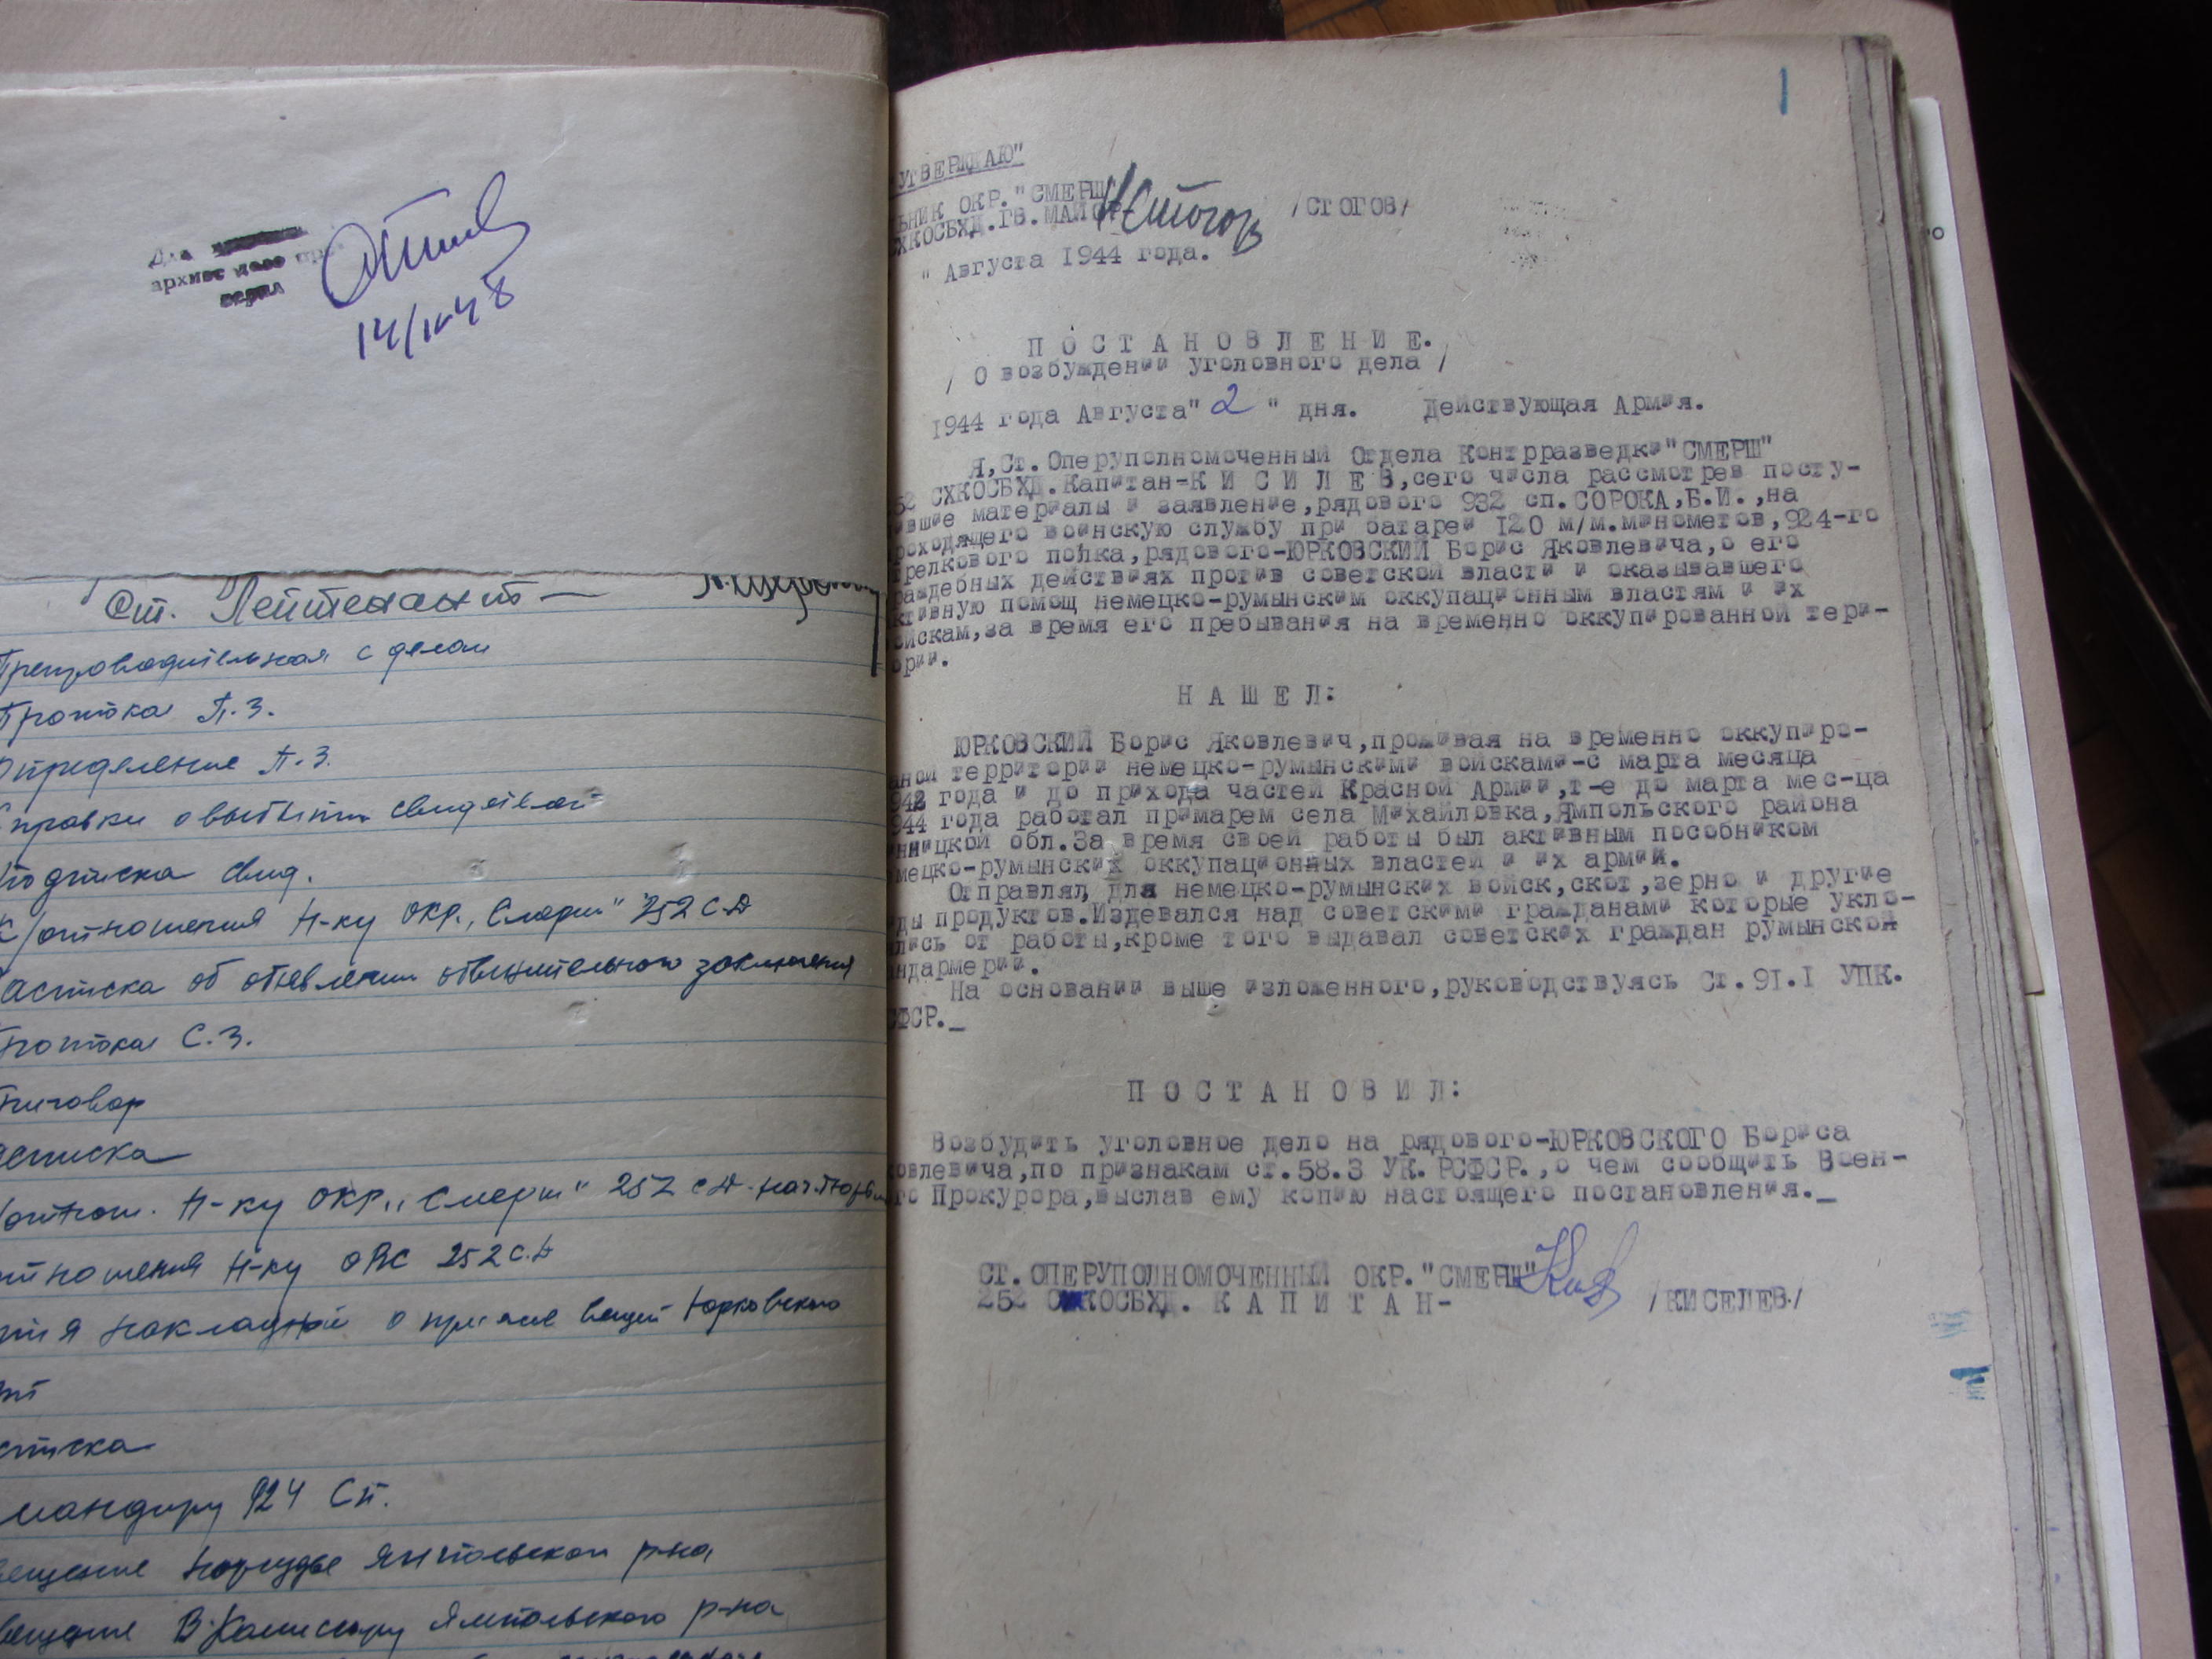 Для
архивс дело
14/IX-48
Ст. Лейтенант —
Препроводительная с делом
Протокол П.З.
Определение П.З.
справки о выбытии свидетелей
подписка свид.
отношения Н-ку ОКР., Смерш" 252 С.Д
об об'явлении обвинительного заключения
протокол С.З.
приговор
расписка
Н-ку ОКР „Смерш" 252 с.д.
отношения Н-ку ОВС 252 С.Д
накладной о приёме вещей Юрковского
командиру 924 Сп.
Ямпольского р-на
Ямпольского р-на
1
УТВЕРЖДАЮ"
ЛЬНИК ОКР."СМЕРШ"
СХКОСБХД.ГВ.МАЙОР Стогов /СТОГОВ/
" Августа 1944 года.
П О С Т А Н О В Л Е Н И Е.
/ О возбуждении уголовного дела /
1944 года Августа" 2 " дня. Действующая Армия.
Я,Ст.Оперуполномоченный Отдела Контрразведки"СМЕРШ"
52 СХКОСБХД.Капитан-К И С И Л Е В,сего числа рассмотрев посту-
ившие материалы и заявление,рядового 932 сп.СОРОКА,Б.И.,на
роходящего воинскую службу при батареи 120 м/м.минометов,924-го
трелкового полка,рядового-ЮРКОВСКИЙ Борис Яковлевича,о его
раждебных действиях против советской власти и оказывавшего
ктивную помощ немецко-румынским оккупационным властям и их
ойскам,за время его пребывания на временно оккупированной тери-
ории.
Н А Ш Е Л:
ЮРКОВСКИЙ Борис Яковлевич,проживая на временно оккупиро-
аной территории немецко-румынскими войсками-с марта месяца
942 года и до прихода частей Красной Армии,т-е до марта мес-ца
944 года работал примарем села Михайловка,Ямпольского района
инницкой обл.За время своей работы был активным пособником
мецко-румынских оккупационных властей и их армий.
Отправлял, для немецко-румынских войск,скот,зерно и другие
ды продуктов.Издевался над советскими гражданами которые укло-
ялись от работы,кроме того выдавал советских граждан румынской
андармерии.
На основании выше изложенного,руководствуясь Ст.91.I УПК.
СФСР._
П О С Т А Н О В И Л:
Возбудить уголовное дело на рядового-ЮРКОВСКОГО Бориса
ковлевича,по признакам ст.58.3 УК.РСФСР.,о чем сообщить Воен-
го Прокурора,выслав ему копию настоящего постановления._
СТ.ОПЕРУПОЛНОМОЧЕННЫЙ ОКР."СМЕРШ"
252 СХКОСБХД. К А П И Т А Н- /КИСЕЛЕВ/